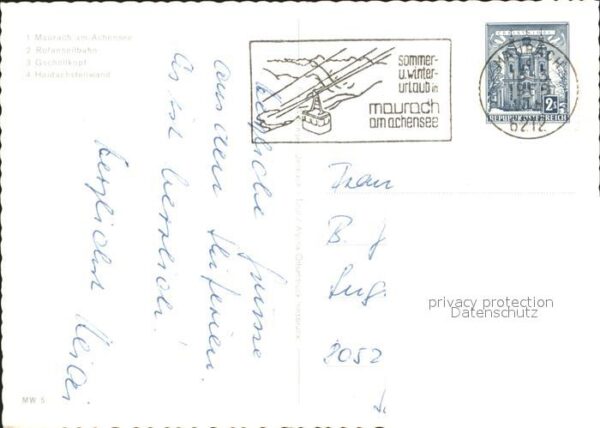 1 Maurach am Achensee
2 Rofanseilbahn
3 Gschöllkopf
4 Haidachstellwand
sommer-
u. winter-
urlaub in
maurach
am achensee
MAURACH
6212
2 S
REPUBLIK ÖSTERREICH
Herzliche Grüsse
aus den Skiferien.
Es ist herrlich!
herzlichst Heidi
Frau
B. J
Lug.
2052
privacy protection
Datenschutz
MW 5